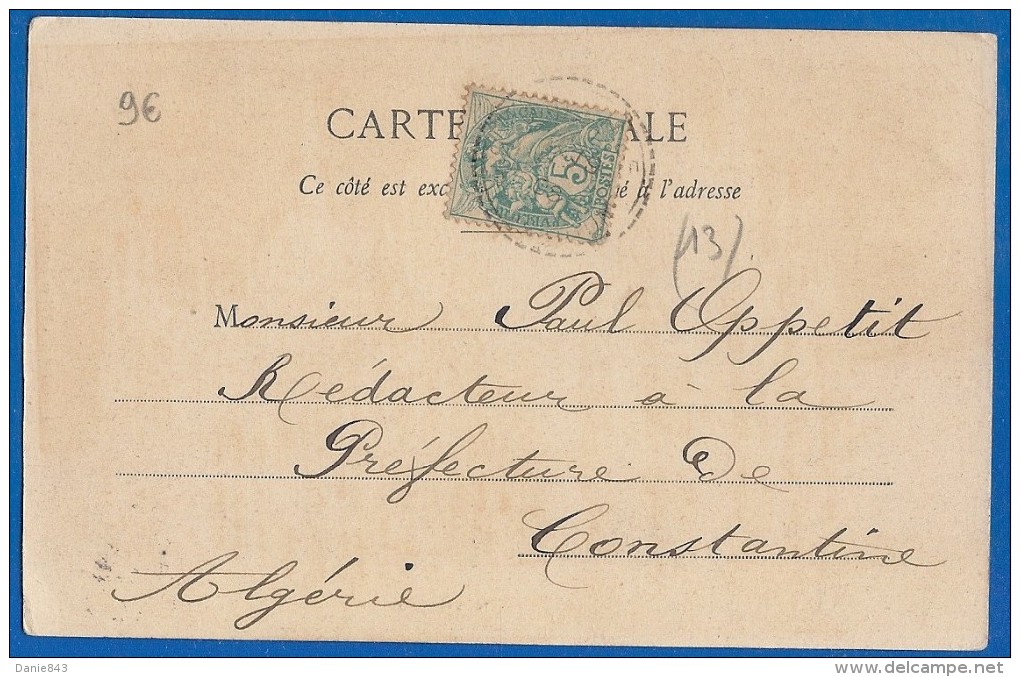 96
CARTE ALE
Ce côté est exc é à l'adresse
5c
POSTES
(13)
Monsieur Paul Oppetit
Rédacteur à la
Préfecture De
Constantine
Algérie
Danie843
www.delcampe.net